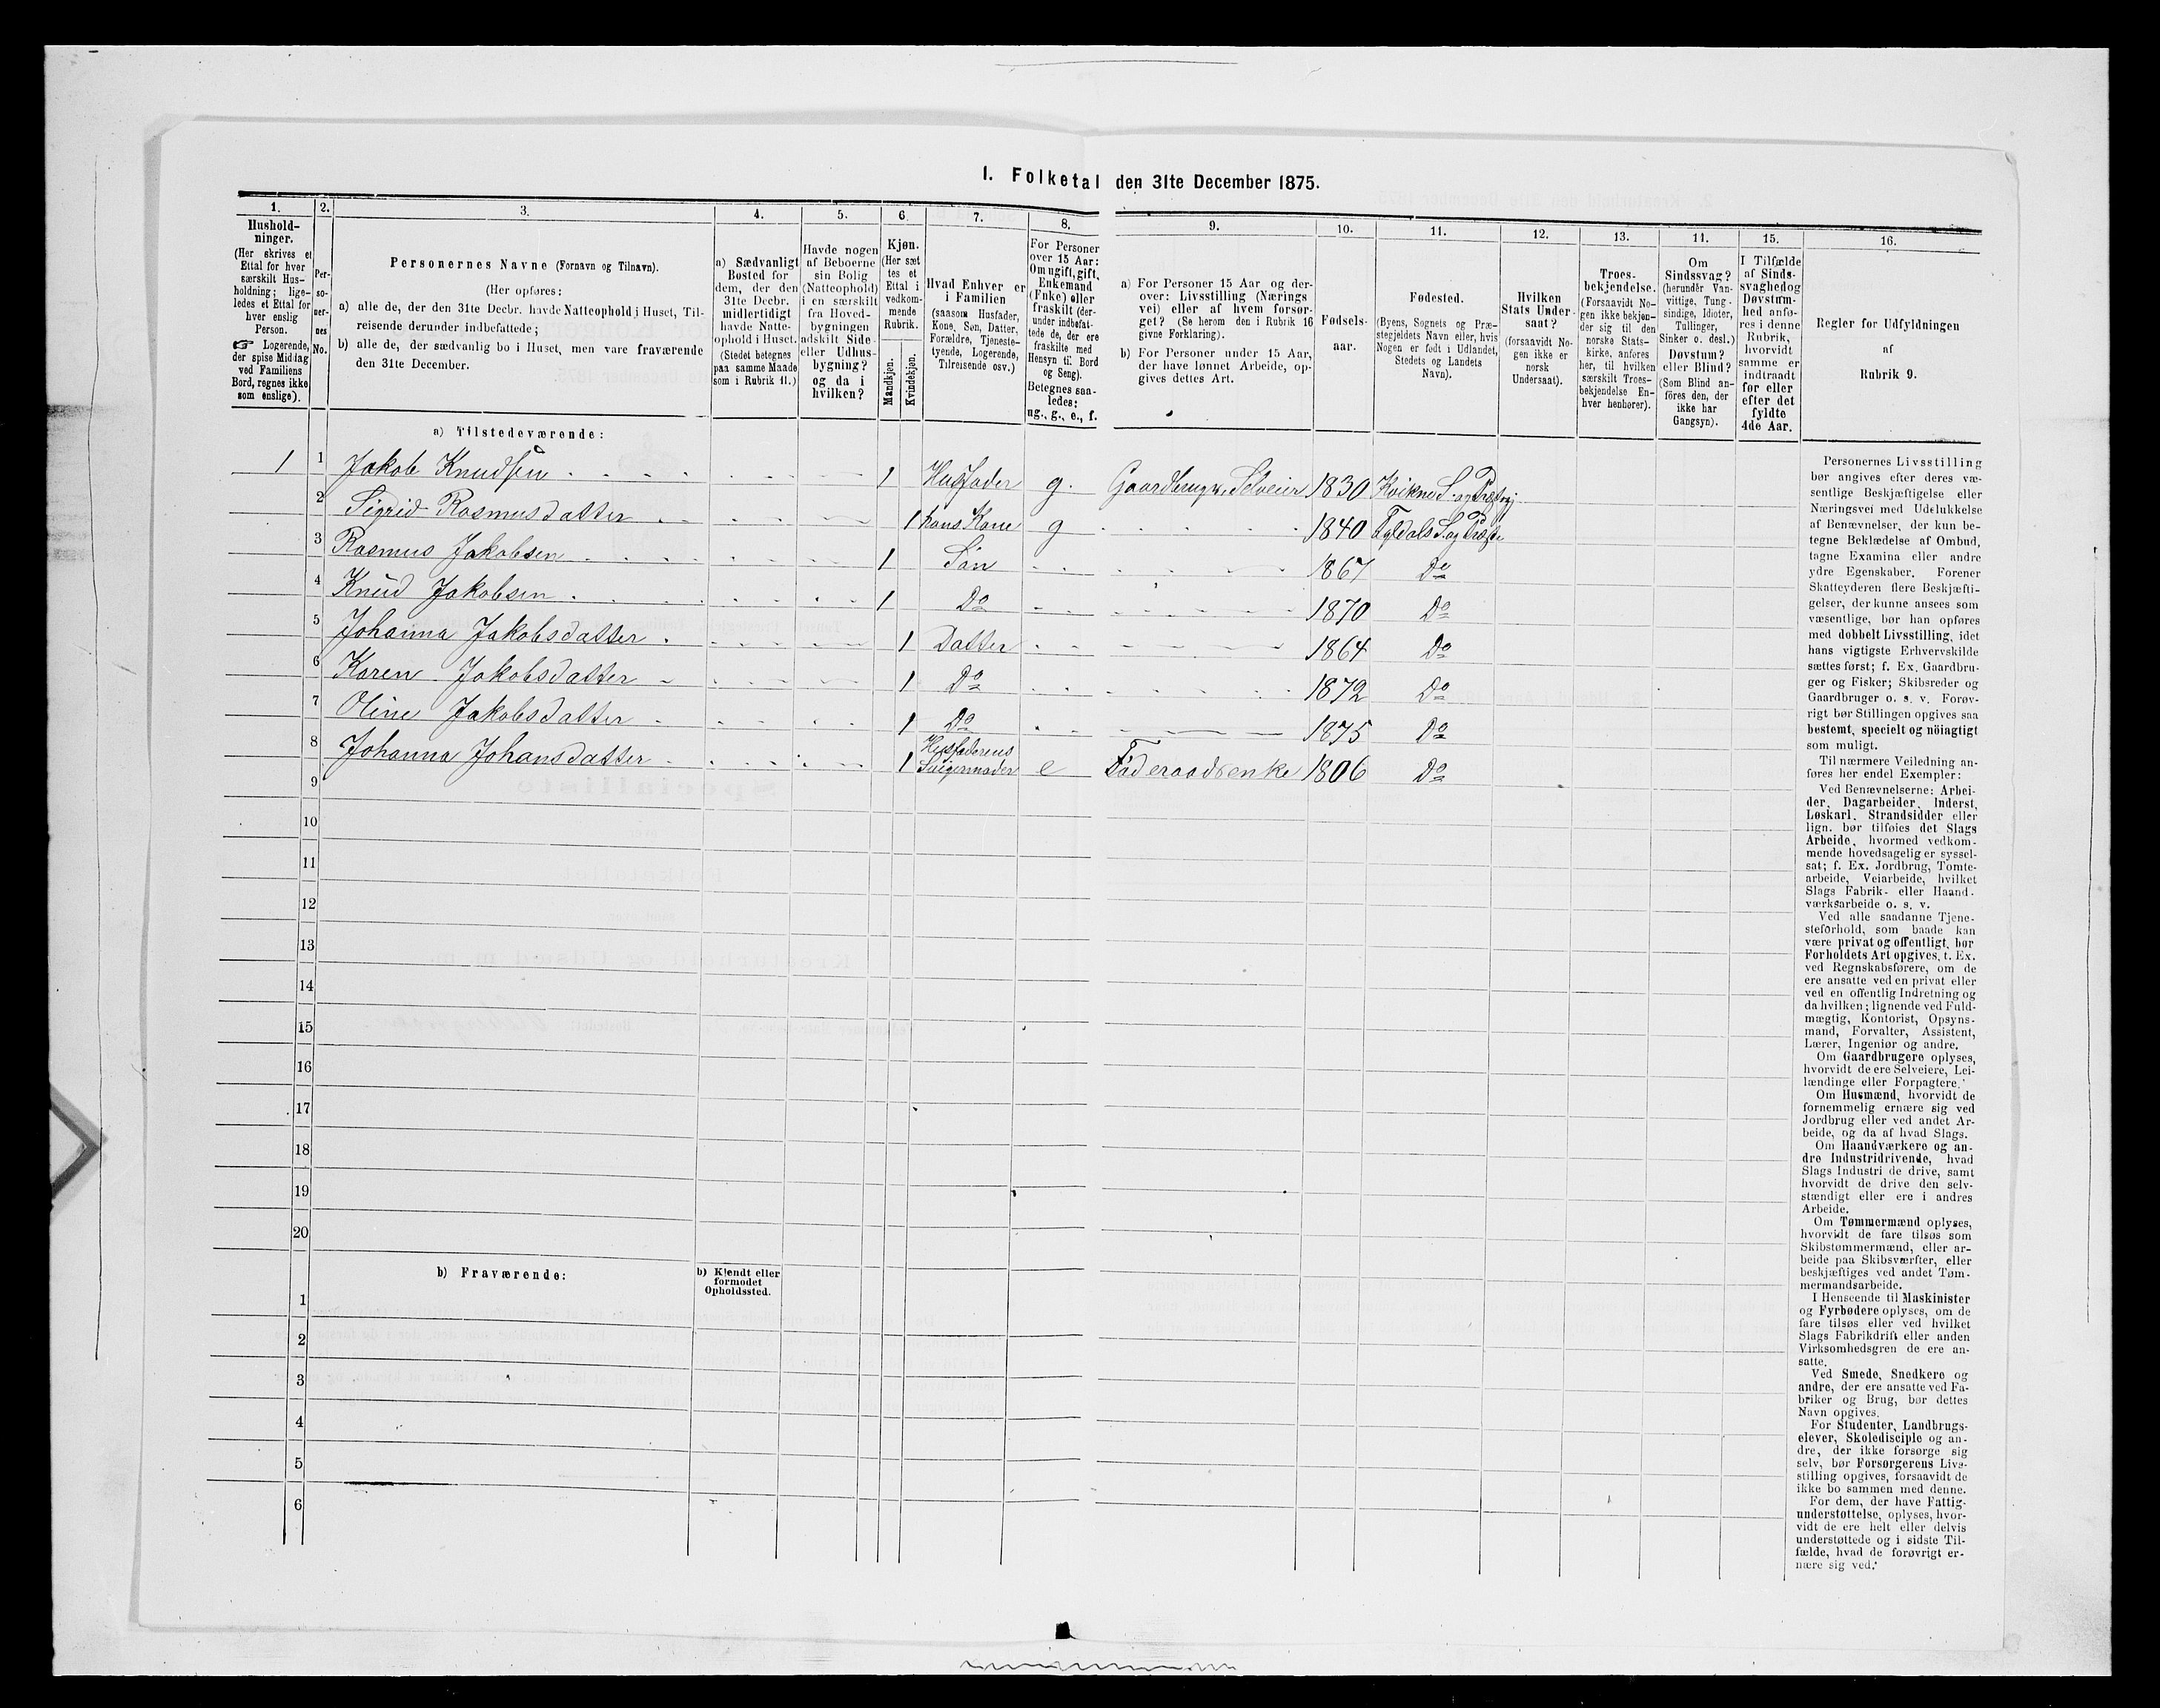 1. Folketal den 31te December 1875.
1. 2. 3. 4. 5. 6. 7. 8. 9. 10. 11. 12. 13. 14. 15. 16.
Hushold-
ninger.
(Her skrives et
Ettal for hver
særskilt Hus-
holdning; lige-
ledes et Ettal for
hver enslig
Person.
☞ Logerende,
der spise Middag
ved Familiens
Bord, regnes ikke
som enslige).
Per-
so-
ner-
nes
No.
Personernes Navne (Fornavn og Tilnavn).
(Her opføres:
a) alle de, der den 31te Decbr. havde Natteophold i Huset, Til-
reisende derunder indbefattede;
b) alle de, der sædvanlig bo i Huset, men vare fraværende
den 31te December.
a) Sædvanligt
Bosted for
dem, der den
31te Decbr.
midlertidigt
havde Natte-
ophold i Huset.
(Stedet betegnes
paa samme Maade
som i Rubrik 11.)
Havde nogen
af Beboerne
sin Bolig
(Natteophold)
i en særskilt
fra Hoved-
bygningen
adskilt Side-
eller Udhus-
bygning?
og da i
hvilken?
Kjøn.
(Her sæt
tes et
Ettal i
vedkom-
mende
Rubrik.
Mandkjøn.
Kvindekjøn.
Hvad Enhver er
i Familien
(saasom Husfader,
Kone, Søn, Datter,
Forældre, Tjeneste-
tyende, Logerende,
Tilreisende osv.)
For Personer
over 15 Aar:
Om ugift, gift,
Enkemand
(Enke) eller
fraskilt (der-
under indbefat-
tede de, der ere
fraskilte med
Hensyn til Bord
og Seng).
Betegnes saa-
ledes:
ug., g., e., f.
a) For Personer 15 Aar og der-
over: Livsstilling (Nærings
vei) eller af hvem forsør-
get? (Se herom den i Rubrik 16
givne Forklaring).
b) For Personer under 15 Aar,
der have lønnet Arbeide, op-
gives dettes Art.
Fødsels-
aar.
Fødested.
(Byens, Sognets og Præ-
stegjeldets Navn eller, hvis
Nogen er født i Udlandet,
Stedets og Landets
Navn).
Hvilken
Stats Under-
saat?
(forsaavidt No-
gen ikke er
norsk
Undersaat).
Troes-
bekjendelse.
(Forsaavidt No-
gen ikke bekjen-
der sig til den
norske Stats-
kirke, anføres
her, til hvilken
særskilt Troes-
bekjendelse En-
hver henhører).
Om
Sindssvag?
(herunder Van-
vittige, Tung-
sindige, Idioter,
Tullinger,
Sinker o. desl.)
Døvstum?
eller Blind?
(Som Blind an-
føres den, der
ikke har
Gangsyn).
I Tilfælde
af Sinds-
svaghed og
Døvstum-
hed anfø-
res i denne
Rubrik,
hvorvidt
samme er
indtraadt
før eller
efter det
fyldte
4de Aar.
Regler for Udfyldningen
af
Rubrik 9.
a) Tilstedeværende:
1 1 Jakob Knudsen 1 Husfader g. Gaardbruger, Selveier 1830 Kvikne S. og Præstegj
2 Sigrid Rasmusdatter 1 hans Kone g 1840 Tyldals S. og
3 Rasmus Jakobsen 1 Søn 1867 Do
4 Knud Jakobsen 1 Do 1870 Do
5 Johanna Jakobsdatter 1 Datter 1864 Do
6 Karen Jakobsdatter 1 Do 1872 Do
7 Oline Jakobsdatter 1 Do 1875 Do
8 Johanna Johansdatter 1 Husfaderens Svigermoder e Føderaadsenke 1806 Do
9
10
11
12
13
14
15
16
17
18
19
20
b) Fraværende:
b) Kjendt eller
formodet
Opholdssted.
1
2
3
4
5
6
Personernes Livsstilling
bør angives efter deres væ-
sentlige Beskjæftigelse eller
Næringsvei med Udelukkelse
af Benævnelser, der kun be-
tegne Beklædelse af Ombud,
tagne Examina eller andre
ydre Egenskaber. Forener
Skatteyderen flere Beskjæfti-
gelser, der kunne ansees som
væsentlige, bør han opføres
med dobbelt Livsstilling, idet
hans vigtigste Erhvervskilde
sættes først; f. Ex. Gaardbru-
ger og Fisker; Skibsreder og
Gaardbruger o. s. v. Forøv-
rigt bør Stillingen opgives saa
bestemt, specielt og nöiagtigt
som muligt.
Til nærmere Veiledning an-
føres her endel Exempler:
Ved Benævnelserne: Arbei-
der, Dagarbeider, Inderst,
Løskarl, Strandsidder eller
lign. bør tilføies det Slags
Arbeide, hvormed vedkom-
mende hovedsagelig er syssel-
sat; f. Ex. Jordbrug, Tomte-
arbeide, Veiarbeide, hvilket
Slags Fabrik- eller Haand-
værksarbeide o. s. v.
Ved alle saadanne Tjene-
steforhold, som baade kan
være privat og offentligt, bør
Forholdets Art opgives, f. Ex.
ved Regnskabsførere, om de
ere ansatte ved en privat eller
ved en offentlig Indretning og
da hvilken; lignende ved Fuld-
mægtig, Kontorist, Opsyns-
mand, Forvalter, Assistent,
Lærer, Ingeniør og andre.
Om Gaardbrugere oplyses,
hvorvidt de ere Selveiere, Lei-
lændinge eller Forpagtere.
Om Husmænd, hvorvidt de
fornemmelig ernære sig ved
Jordbrug eller ved andet Ar-
beide, og da af hvad Slags.
Om Haandværkere og an-
dre Industridrivende, hvad
Slags Industri de drive, samt
hvorvidt de drive den selv-
stændigt eller ere i andres
Arbeide.
Om Tømmermænd oplyses,
hvorvidt de fare tilsøs som
Skibstømmermænd, eller ar-
beide paa Skibsværfter, eller
beskjæftiges ved andet Tøm-
mermandsarbeide.
I Henseende til Maskinister
og Fyrbødere oplyses, om de
fare tilsøs eller ved hvilket
Slags Fabrikdrift eller anden
Virksomhedsgren de ere an-
satte.
Ved Smede, Snedkere og
andre, der ere ansatte ved Fa-
briker og Brug, bør dettes
Navn opgives.
For Studenter, Landbrugs-
elever, Skoledisciple og an-
dre, der ikke forsørge sig
selv, bør Forsørgerens Livs-
stilling opgives, forsaavidt de
ikke bo sammen med denne.
For dem, der have Fattig-
understøttelse, oplyses, hvor-
vidt de ere helt eller delvis
understøttede og i sidste Til-
fælde, hvad de forøvrigt er-
nære sig ved.